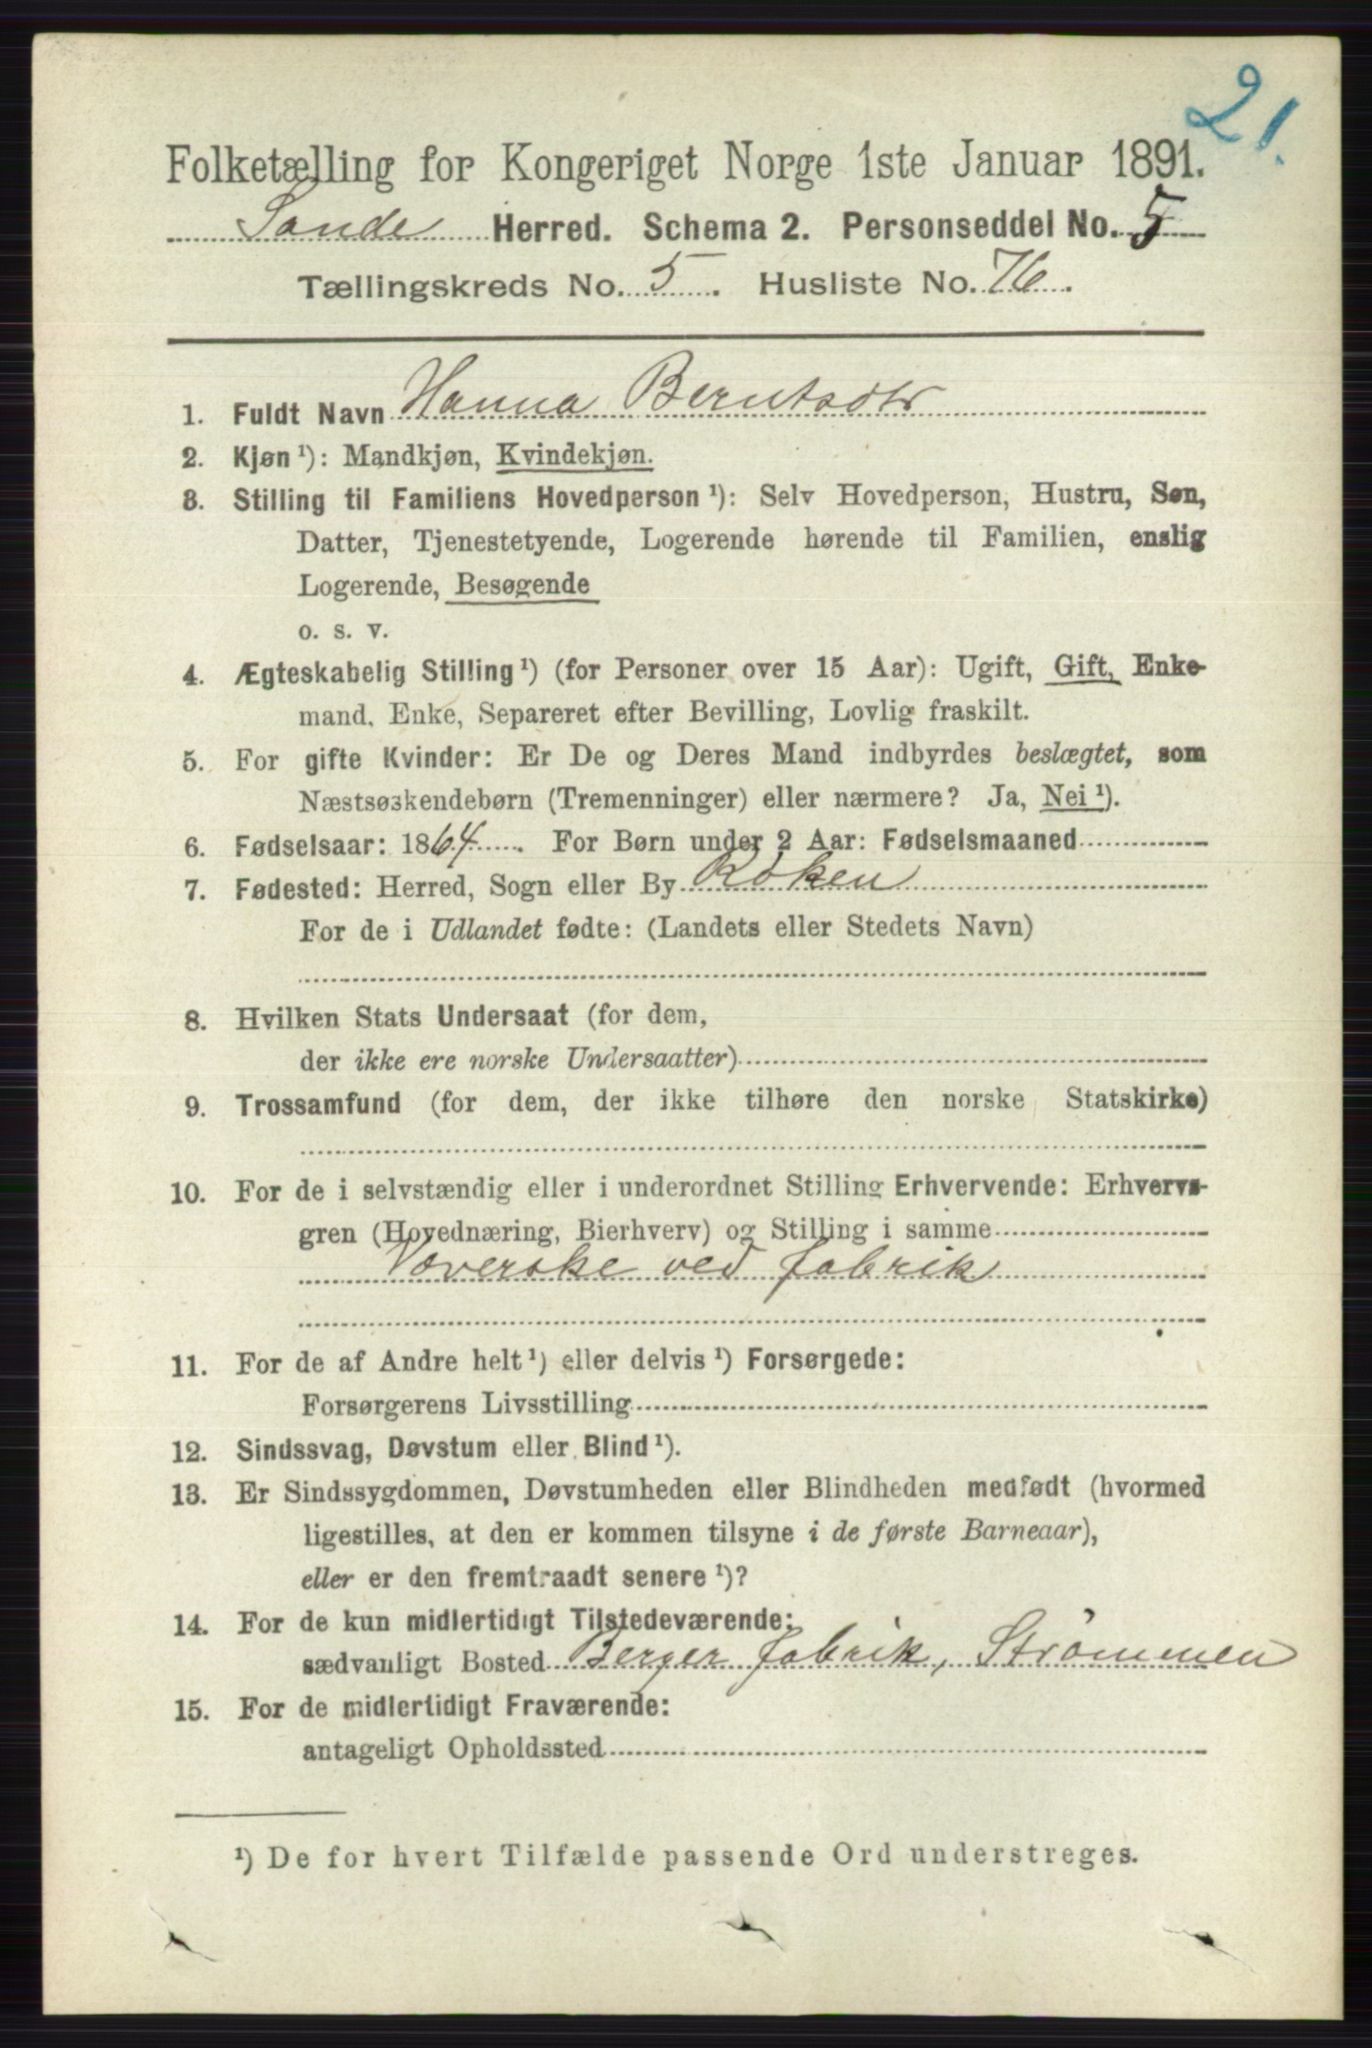 21.
Folketælling for Kongeriget Norge 1ste Januar 1891.
Sande Herred. Schema 2. Personseddel No. 5
Tællingskreds No. 5. Husliste No. 76.
1. Fuldt Navn Hanna Berntsdtr
2. Kjøn ¹): Mandkjøn, Kvindekjøn.
3. Stilling til Familiens Hovedperson ¹): Selv Hovedperson, Hustru, Søn,
Datter, Tjenestetyende, Logerende hørende til Familien, enslig
Logerende, Besøgende
o. s. v.
4. Ægteskabelig Stilling ¹) (for Personer over 15 Aar): Ugift, Gift, Enke-
mand, Enke, Separeret efter Bevilling, Lovlig fraskilt.
5. For gifte Kvinder: Er De og Deres Mand indbyrdes beslægtet, som
Næstsøskendebørn (Tremenninger) eller nærmere? Ja, Nei ¹).
6. Fødselsaar: 1864. For Børn under 2 Aar: Fødselsmaaned
7. Fødested: Herred, Sogn eller By Röken
For de i Udlandet fødte: (Landets eller Stedets Navn)
8. Hvilken Stats Undersaat (for dem,
der ikke ere norske Undersaatter)
9. Trossamfund (for dem, der ikke tilhøre den norske Statskirke)
10. For de i selvstændig eller i underordnet Stilling Erhvervende: Erhvervs-
gren (Hovednæring, Bierhverv) og Stilling i samme
Væverske ved fabrik
11. For de af Andre helt ¹) eller delvis ¹) Forsørgede:
Forsørgerens Livsstilling
12. Sindssvag, Døvstum eller Blind ¹).
13. Er Sindssygdommen, Døvstumheden eller Blindheden medfødt (hvormed
ligestilles, at den er kommen tilsyne i de første Barneaar),
eller er den fremtraadt senere ¹)?
14. For de kun midlertidigt Tilstedeværende:
sædvanligt Bosted Berger fabrik, Strömmen
15. For de midlertidigt Fraværende:
antageligt Opholdssted
¹) De for hvert Tilfælde passende Ord understreges.